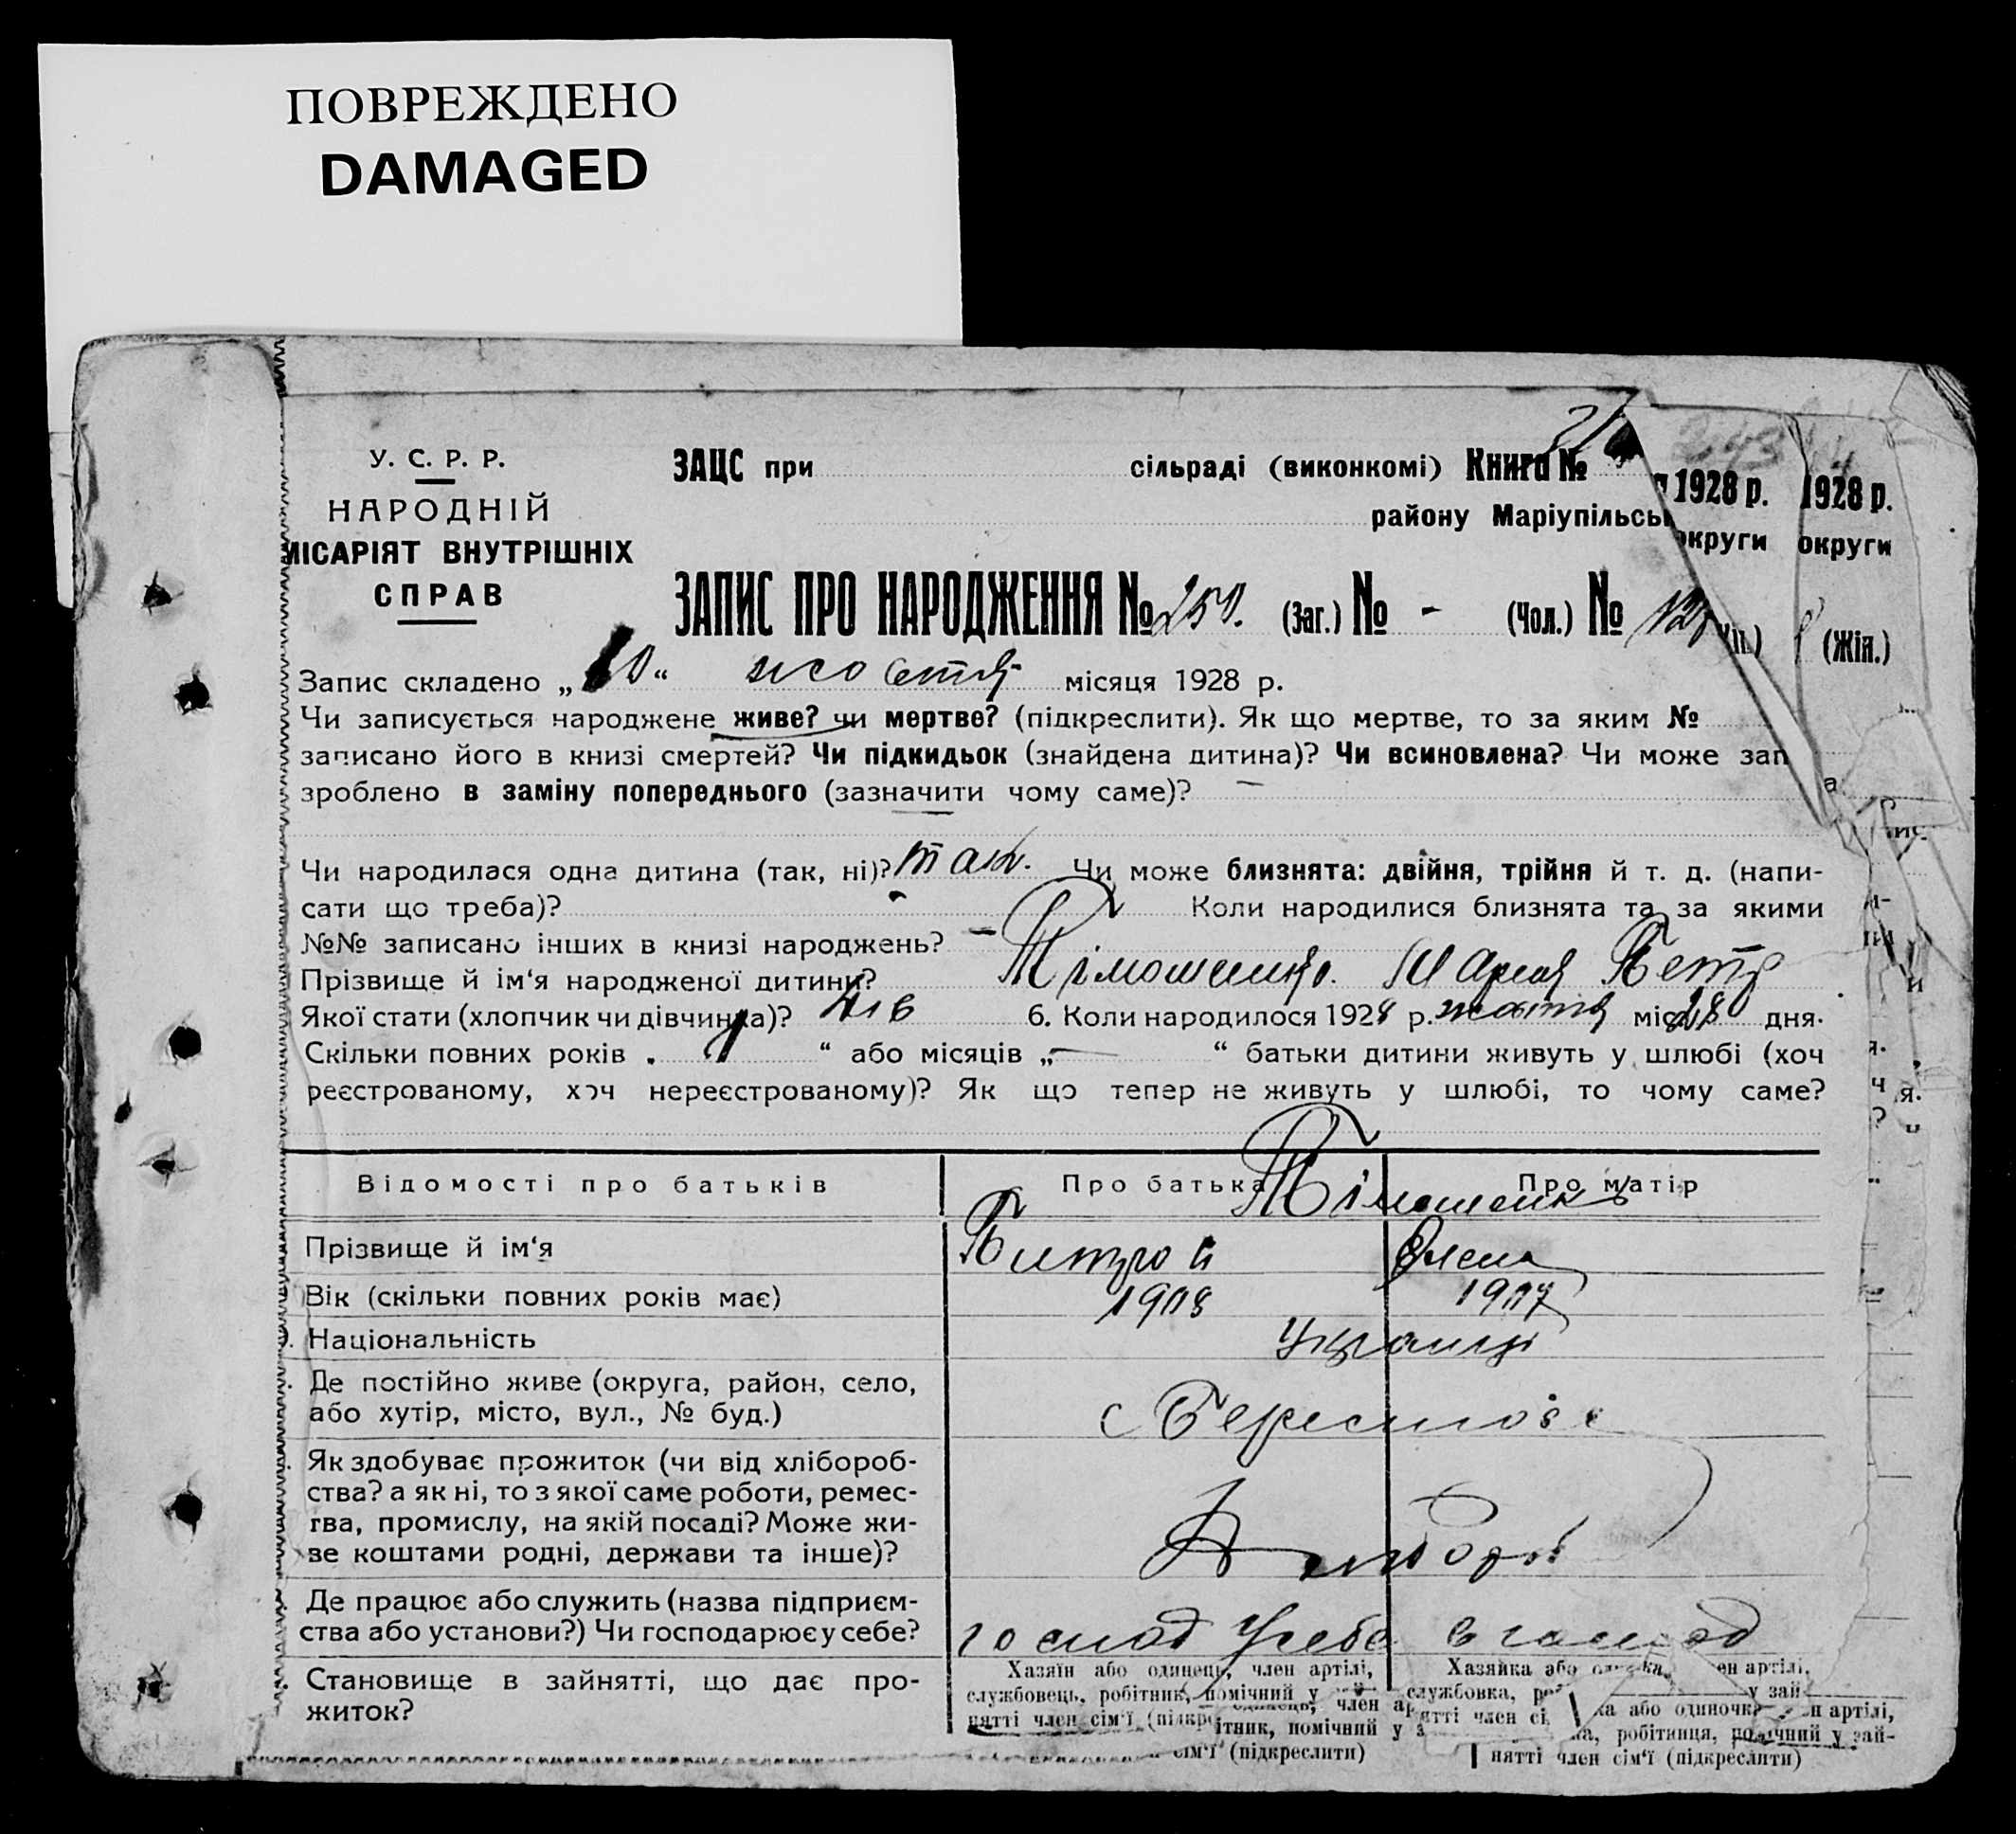 ПОВРЕЖДЕНО
DAMAGED
У. С. Р. Р.
НАРОДНІЙ
МІСАРІЯТ ВНУТРІШНІХ
СПРАВ
ЗАЦС при сільраді (виконкомі) Книга №
району Маріупільсь
1928 р. 1928 р.
округи округи
ЗАПИС ПРО НАРОДЖЕННЯ № 250. (Заг.) № - (Чол.) № (Жін.)
Запис складено „ “ місяця 1928 р.
Чи записується народжене живе? чи мертве? (підкреслити). Як що мертве, то за яким №
записано його в книзі смертей? Чи підкидьок (знайдена дитина)? Чи всиновлена? Чи може зап
зроблено в заміну попереднього (зазначити чому саме)? —
Чи народилася одна дитина (так, ні)? так. Чи може близнята: двійня, трійня й т. д. (напи-
сати що треба)? Коли народилися близнята та за якими
№№ записано інших в книзі народжень? —
Прізвище й ім‘я народженої дитини? Тімошенко. Мария Петр
Якої стати (хлопчик чи дівчинка)? дів 6. Коли народилося 1928 р. жовтня міс 28 дня.
Скільки повних років „ “ або місяців „— “ батьки дитини живуть у шлюбі (хоч
реєстрованому, хоч нереєстрованому)? Як що тепер не живуть у шлюбі, то чому саме?
Відомості про батьків Про батька Про матір
Тімошенко
Прізвище й ім‘я Питро Олена
Вік (скільки повних років має) 1908 1907
Національність Українці
Де постійно живе (округа, район, село,
або хутір, місто, вул., № буд.) с
Як здобуває прожиток (чи від хлібороб-
ства? а як ні, то з якої саме роботи, ремес-
тва, промислу, на якій посаді? Може жи-
ве коштами родні, держави та інше)?
Де працює або служить (назва підприєм-
ства або установи?) Чи господарює у себе? господ Усебе в господ
Становище в зайнятті, що дає про-
житок?
Хазяїн або одинець, член артілі,
службовець, робітник, помічний у
нятті член сім‘ї (підкр
ітник, помічний у
сім‘ї (підкреслити)
Хазяйка або ен артілі,
службовка, у зай
нятті член сі
ка або одиночка н артілі,
робітниця, помічний у зай-
нятті член сім‘ї (підкреслити)